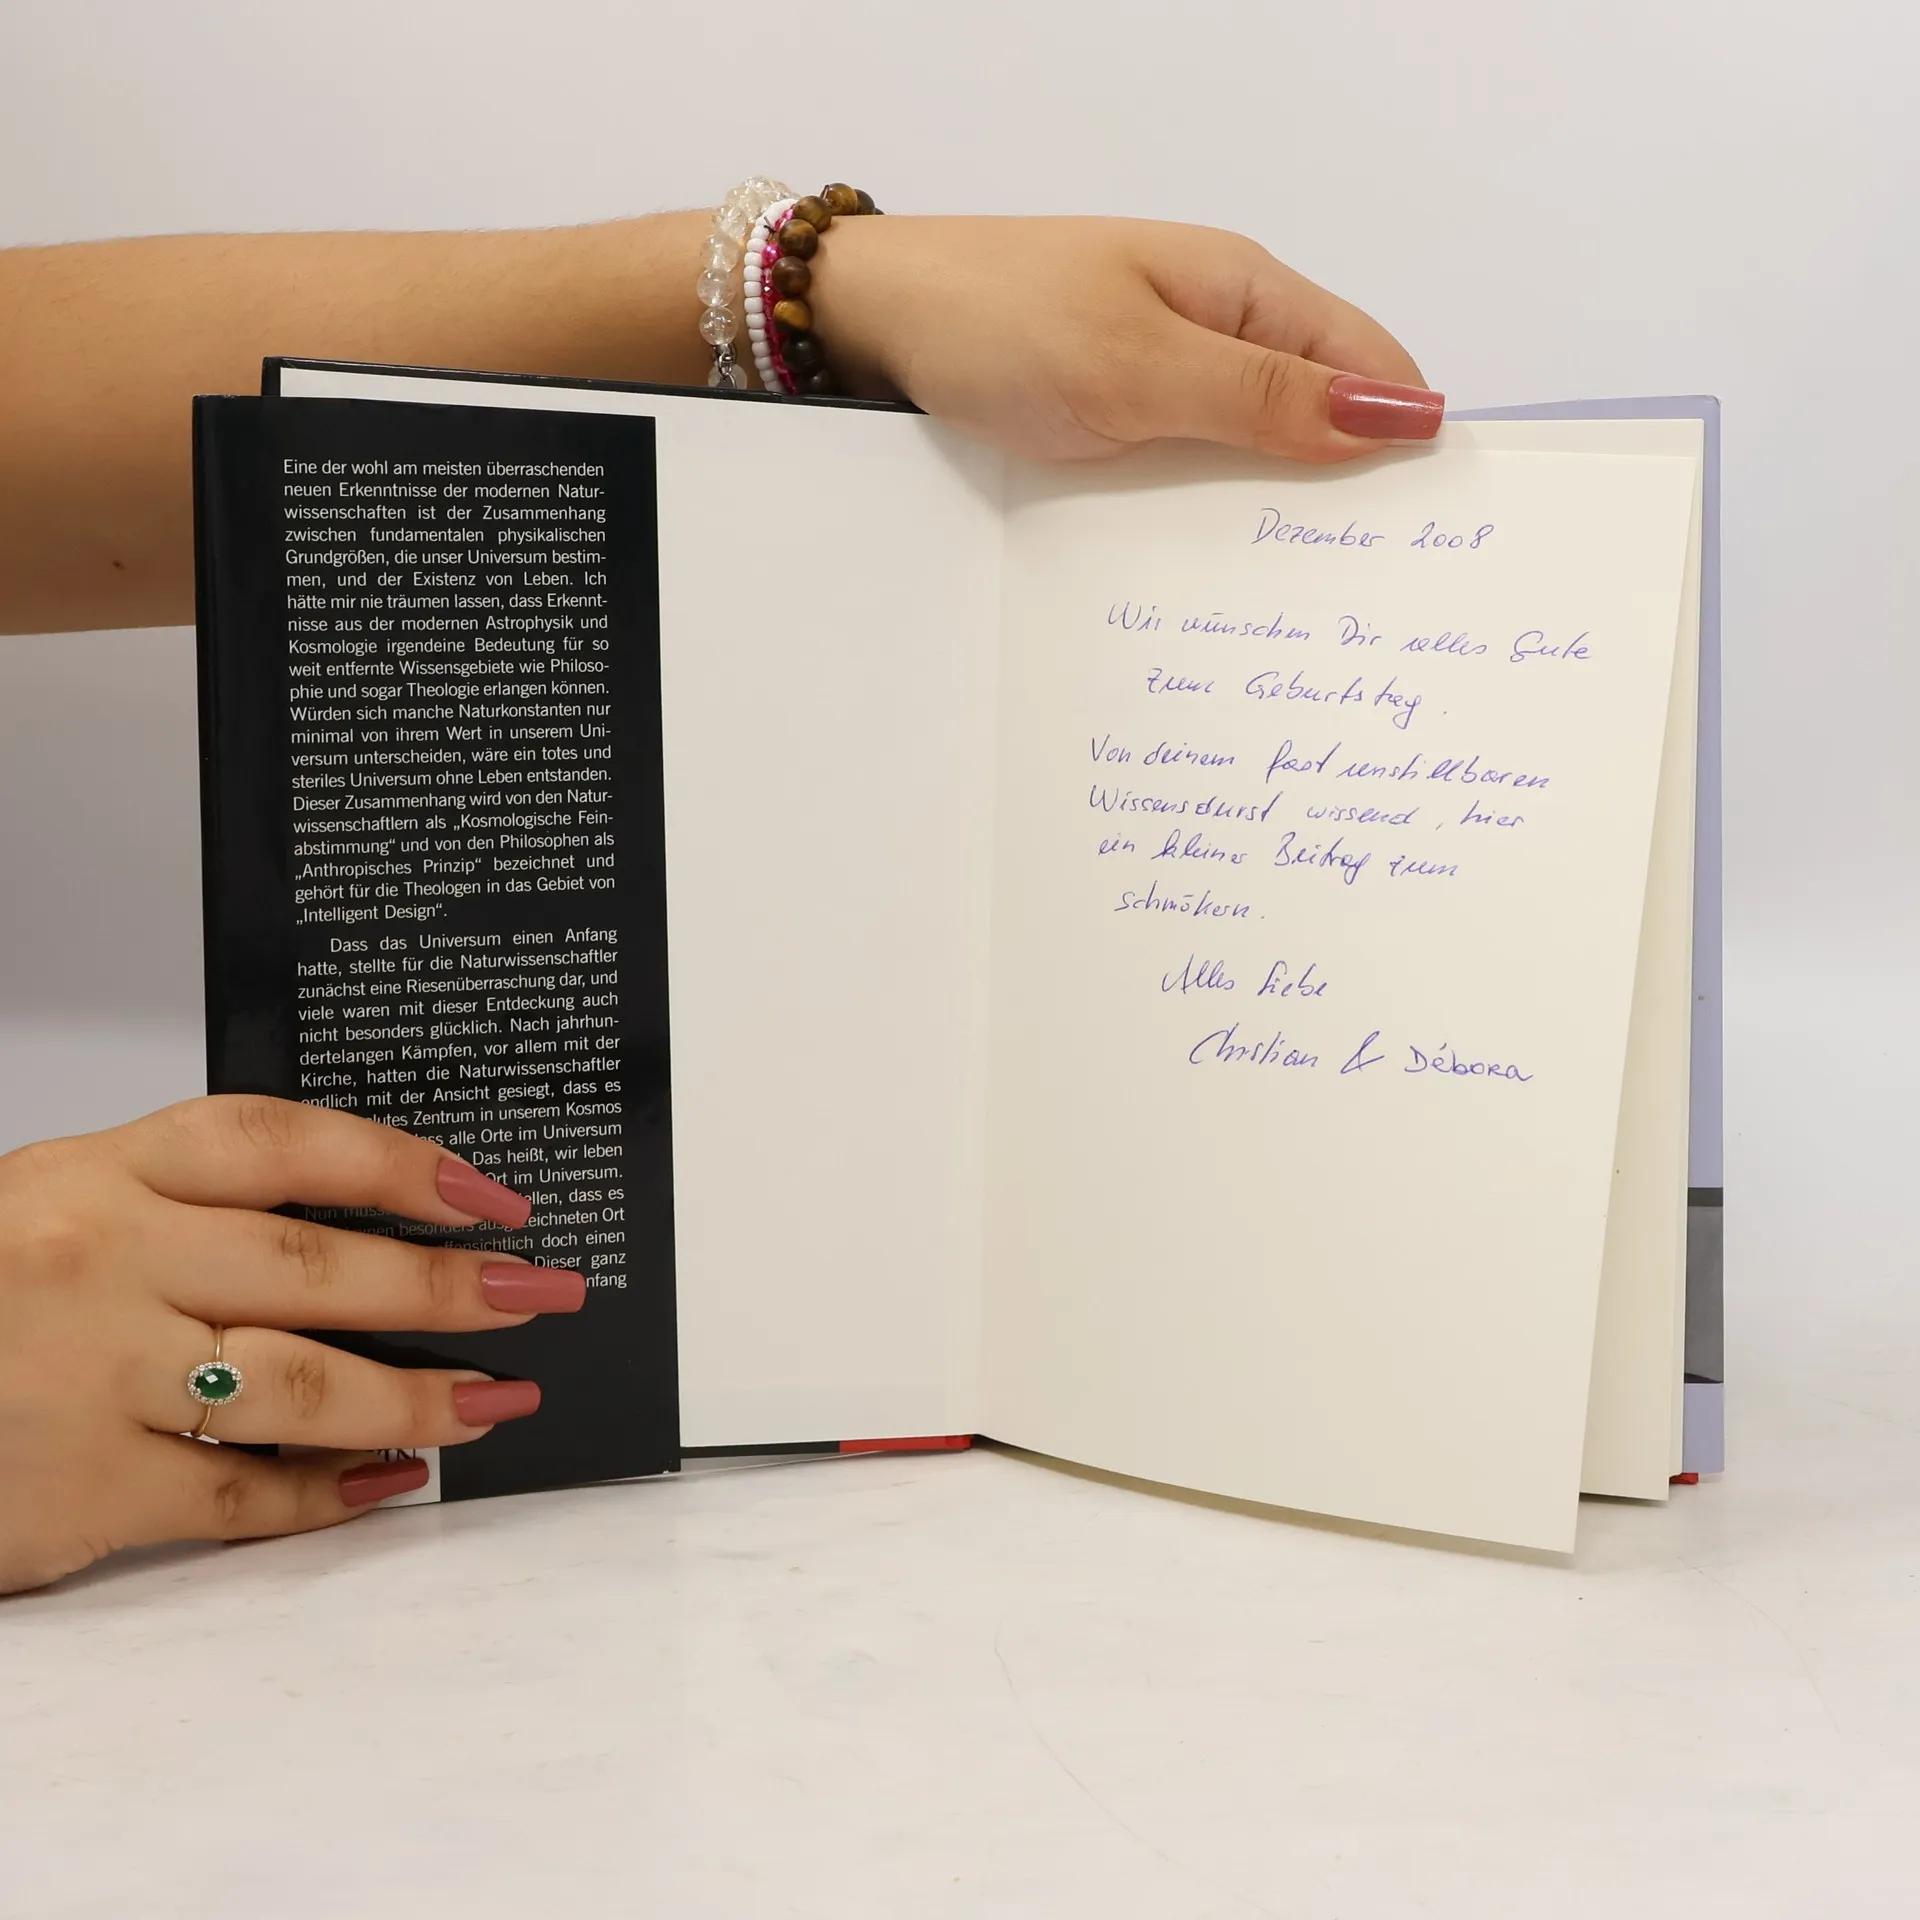 Eine der wohl am meisten überraschenden
neuen Erkenntnisse der modernen Natur-
wissenschaften ist der Zusammenhang
zwischen fundamentalen physikalischen
Grundgrößen, die unser Universum bestim-
men, und der Existenz von Leben. Ich
hätte mir nie träumen lassen, dass Erkennt-
nisse aus der modernen Astrophysik und
Kosmologie irgendeine Bedeutung für so
weit entfernte Wissensgebiete wie Philoso-
phie und sogar Theologie erlangen können.
Würden sich manche Naturkonstanten nur
minimal von ihrem Wert in unserem Uni-
versum unterscheiden, wäre ein totes und
steriles Universum ohne Leben entstanden.
Dieser Zusammenhang wird von den Natur-
wissenschaftlern als „Kosmologische Fein-
abstimmung“ und von den Philosophen als
„Anthropisches Prinzip“ bezeichnet und
gehört für die Theologen in das Gebiet von
„Intelligent Design“.
Dass das Universum einen Anfang
hatte, stellte für die Naturwissenschaftler
zunächst eine Riesenüberraschung dar, und
viele waren mit dieser Entdeckung auch
nicht besonders glücklich. Nach jahrhun-
dertelangen Kämpfen, vor allem mit der
Kirche, hatten die Naturwissenschaftler
endlich mit der Ansicht gesiegt, dass es
lutes Zentrum in unserem Kosmos
ss alle Orte im Universum
Das heißt, wir leben
Ort im Universum.
ellen, dass es
Nun muss
besonders ausgezeichneten Ort
ffensichtlich doch einen
Dieser ganz
nfang
Dezember 2008
Wir wünschen Dir alles Gute
zum Geburtstag.
Von deinem fast unstillbaren
Wissensdurst wissend, hier
ein kleiner Beitrag zum
schmökern.
Alles Liebe
Christian & Débora